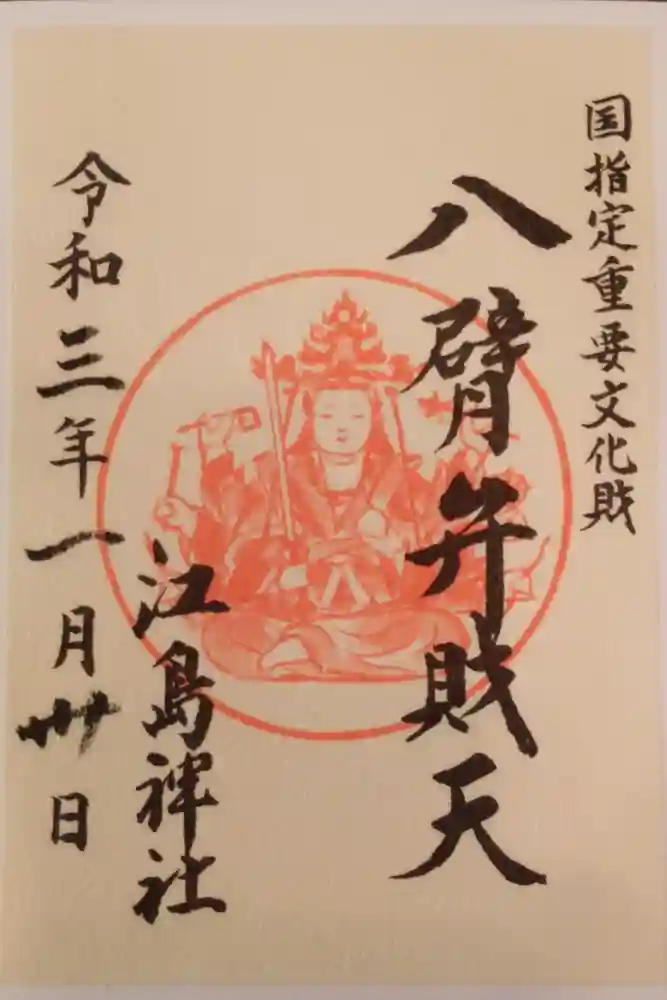 国指定重要文化財
八臂弁財天
江島神社
令和三年一月卅日